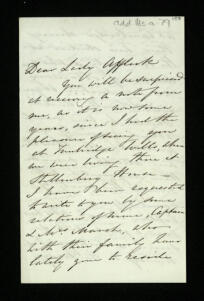 Add. Ms. a 79
Dear Lady Affleck
You will be surprised
at receiving a note from
me, as it is now some
years, since I had the
pleasure of seeing you
at Tunbridge Wells, when
we were living there at
House -
I have been requested
to write to you by some
relations of mine, Captain
& Mrs Marsh, who
with their family have
lately gone to reside